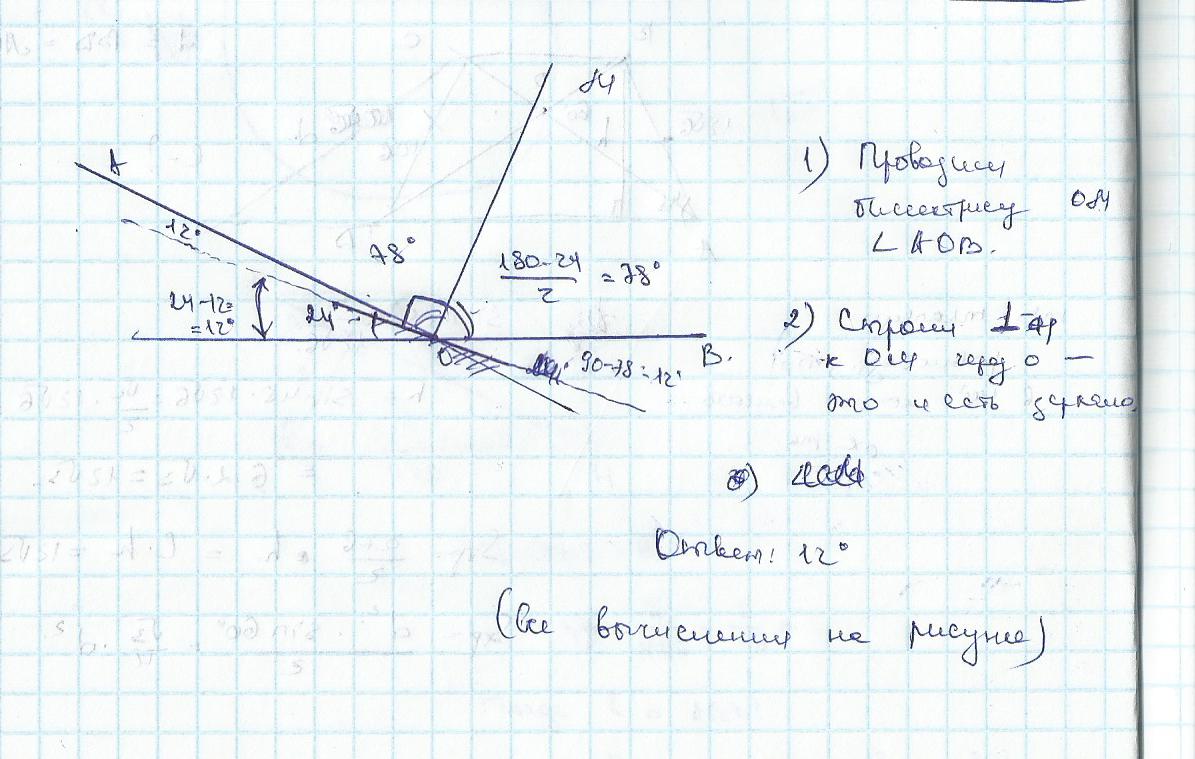 A
M
12°
78°
180-24
= 78°
2
24-12=
=12°
24°
O
B.
90-78=12°
1) Проводим
биссектрису OM
∠ AOB.
2) Строим ⊥-яр
к OM через O —
это и есть зеркало
3)
Ответ: 12°
(все вычисления на рисунке)